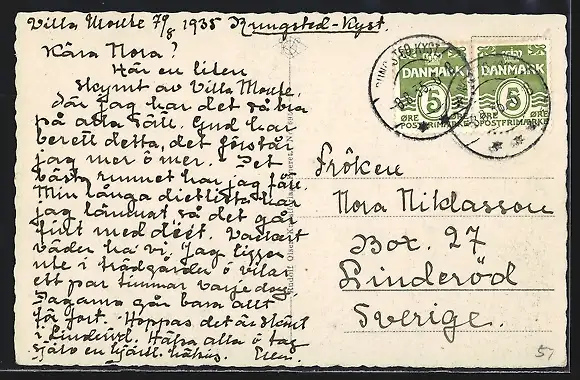 Villa Moute 7/8 1935 Rungsted-Kyst.
Kära Nora!
Här en liten
skymt av Villa Moute,
där jag har det så bra
på alla sätt. Gud har
berett detta, det förstår
jag mer o mer. Det
bästa rummet har jag fått.
Min långa dietlista har
jag lämnat så det går
fint med diët. Vackert
väder ha vi. Jag ligger
ute i trädgården o vilar
ett par timmar varje dag.
Dagarna går bara allt
för fort. Hoppas det är skönt
i Linderöd. Hälsa alla o tag
själv en hjärtl. hälsn.
RUNGSTED KYST
DANMARK
5
ØRE ØRE
POSTFRIM.
DANMARK
5
ØRE ØRE
POSTFRIMÆRKE
Fröken
Nora Niklasson
Box. 27
Linderöd
Sverige.
Rudolf Olsens Kunstforlag Eneret
5,